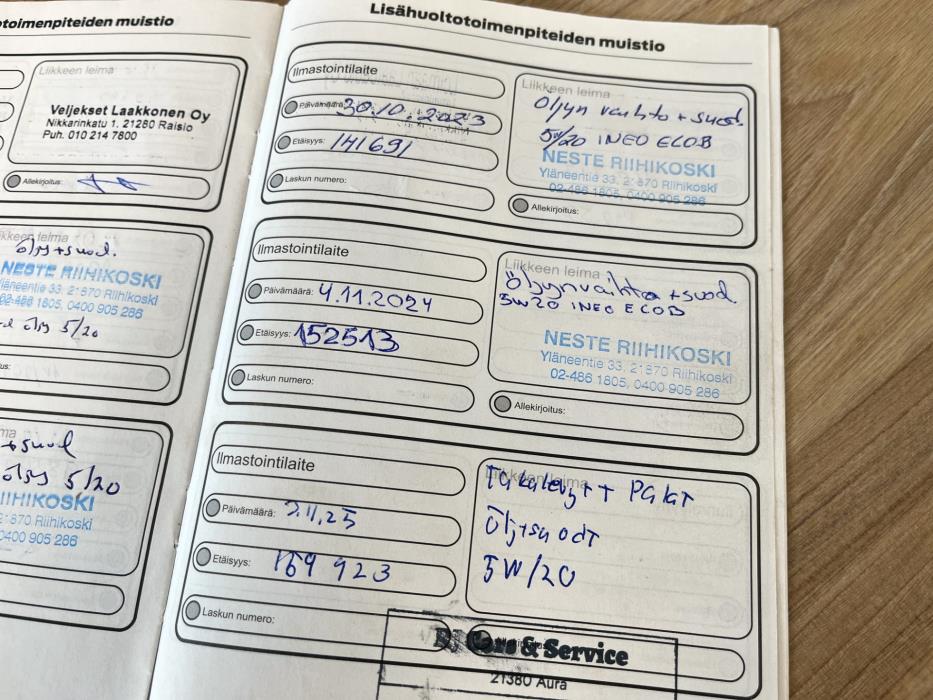 toimenpiteiden muistio
Liikkeen leima
Veljekset Laakkonen Oy
Nikkarinkatu 1, 21280 Raisio
Puh. 010 214 7800
Allekirjoitus:
ikkeen leima
öljy+suod.
NESTE RIIHIKOSKI
Yläneentie 33, 21870 Riihikoski
02-486 1805, 0400 905 286
öljy 5/20
us:
ma
+suod
öljy 5/20
IIHIKOSKI
870 Riihikoski
0400 905 286
Lisähuoltotoimenpiteiden muistio
Ilmastointilaite
Päivämäärä: 30.10.2023
Etäisyys: 141691
Laskun numero:
Liikkeen leima
Öljyn vaihto + suod.
5W/20 INEO ECOB
NESTE RIIHIKOSKI
Yläneentie 33, 21870 Riihikoski
02-486 1805, 0400 905 286
Allekirjoitus:
Ilmastointilaite
Päivämäärä: 4.11.2024
Etäisyys: 152513
Laskun numero:
Liikkeen leima
Öljynvaihto +suod.
5W20 INEO ECOB
NESTE RIIHIKOSKI
Yläneentie 33, 21870 Riihikoski
02-486 1805, 0400 905 286
Allekirjoitus:
Ilmastointilaite
Päivämäärä: 3.11.25
Etäisyys: 169 923
Laskun numero:
Liikkeen leima
Takalevytt Palat
Öljtsuodt
5W/20
Cars & Service
21380 Aura